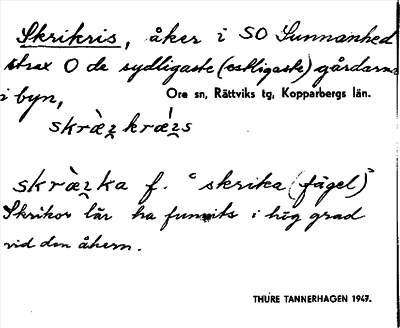 Skrikris, åker i SO Sunnanhed
strax O de sydligaste (ostligaste) gårdarna
i byn,
Ore sn, Rättviks tg, Kopparbergs län.
skræ̀ʐkrǽʐs
skræ̀ʐka f. "skrika (fågel)"
Skrikor lär ha funnits i hög grad
vid den åkern.
THURE TANNERHAGEN 1947.